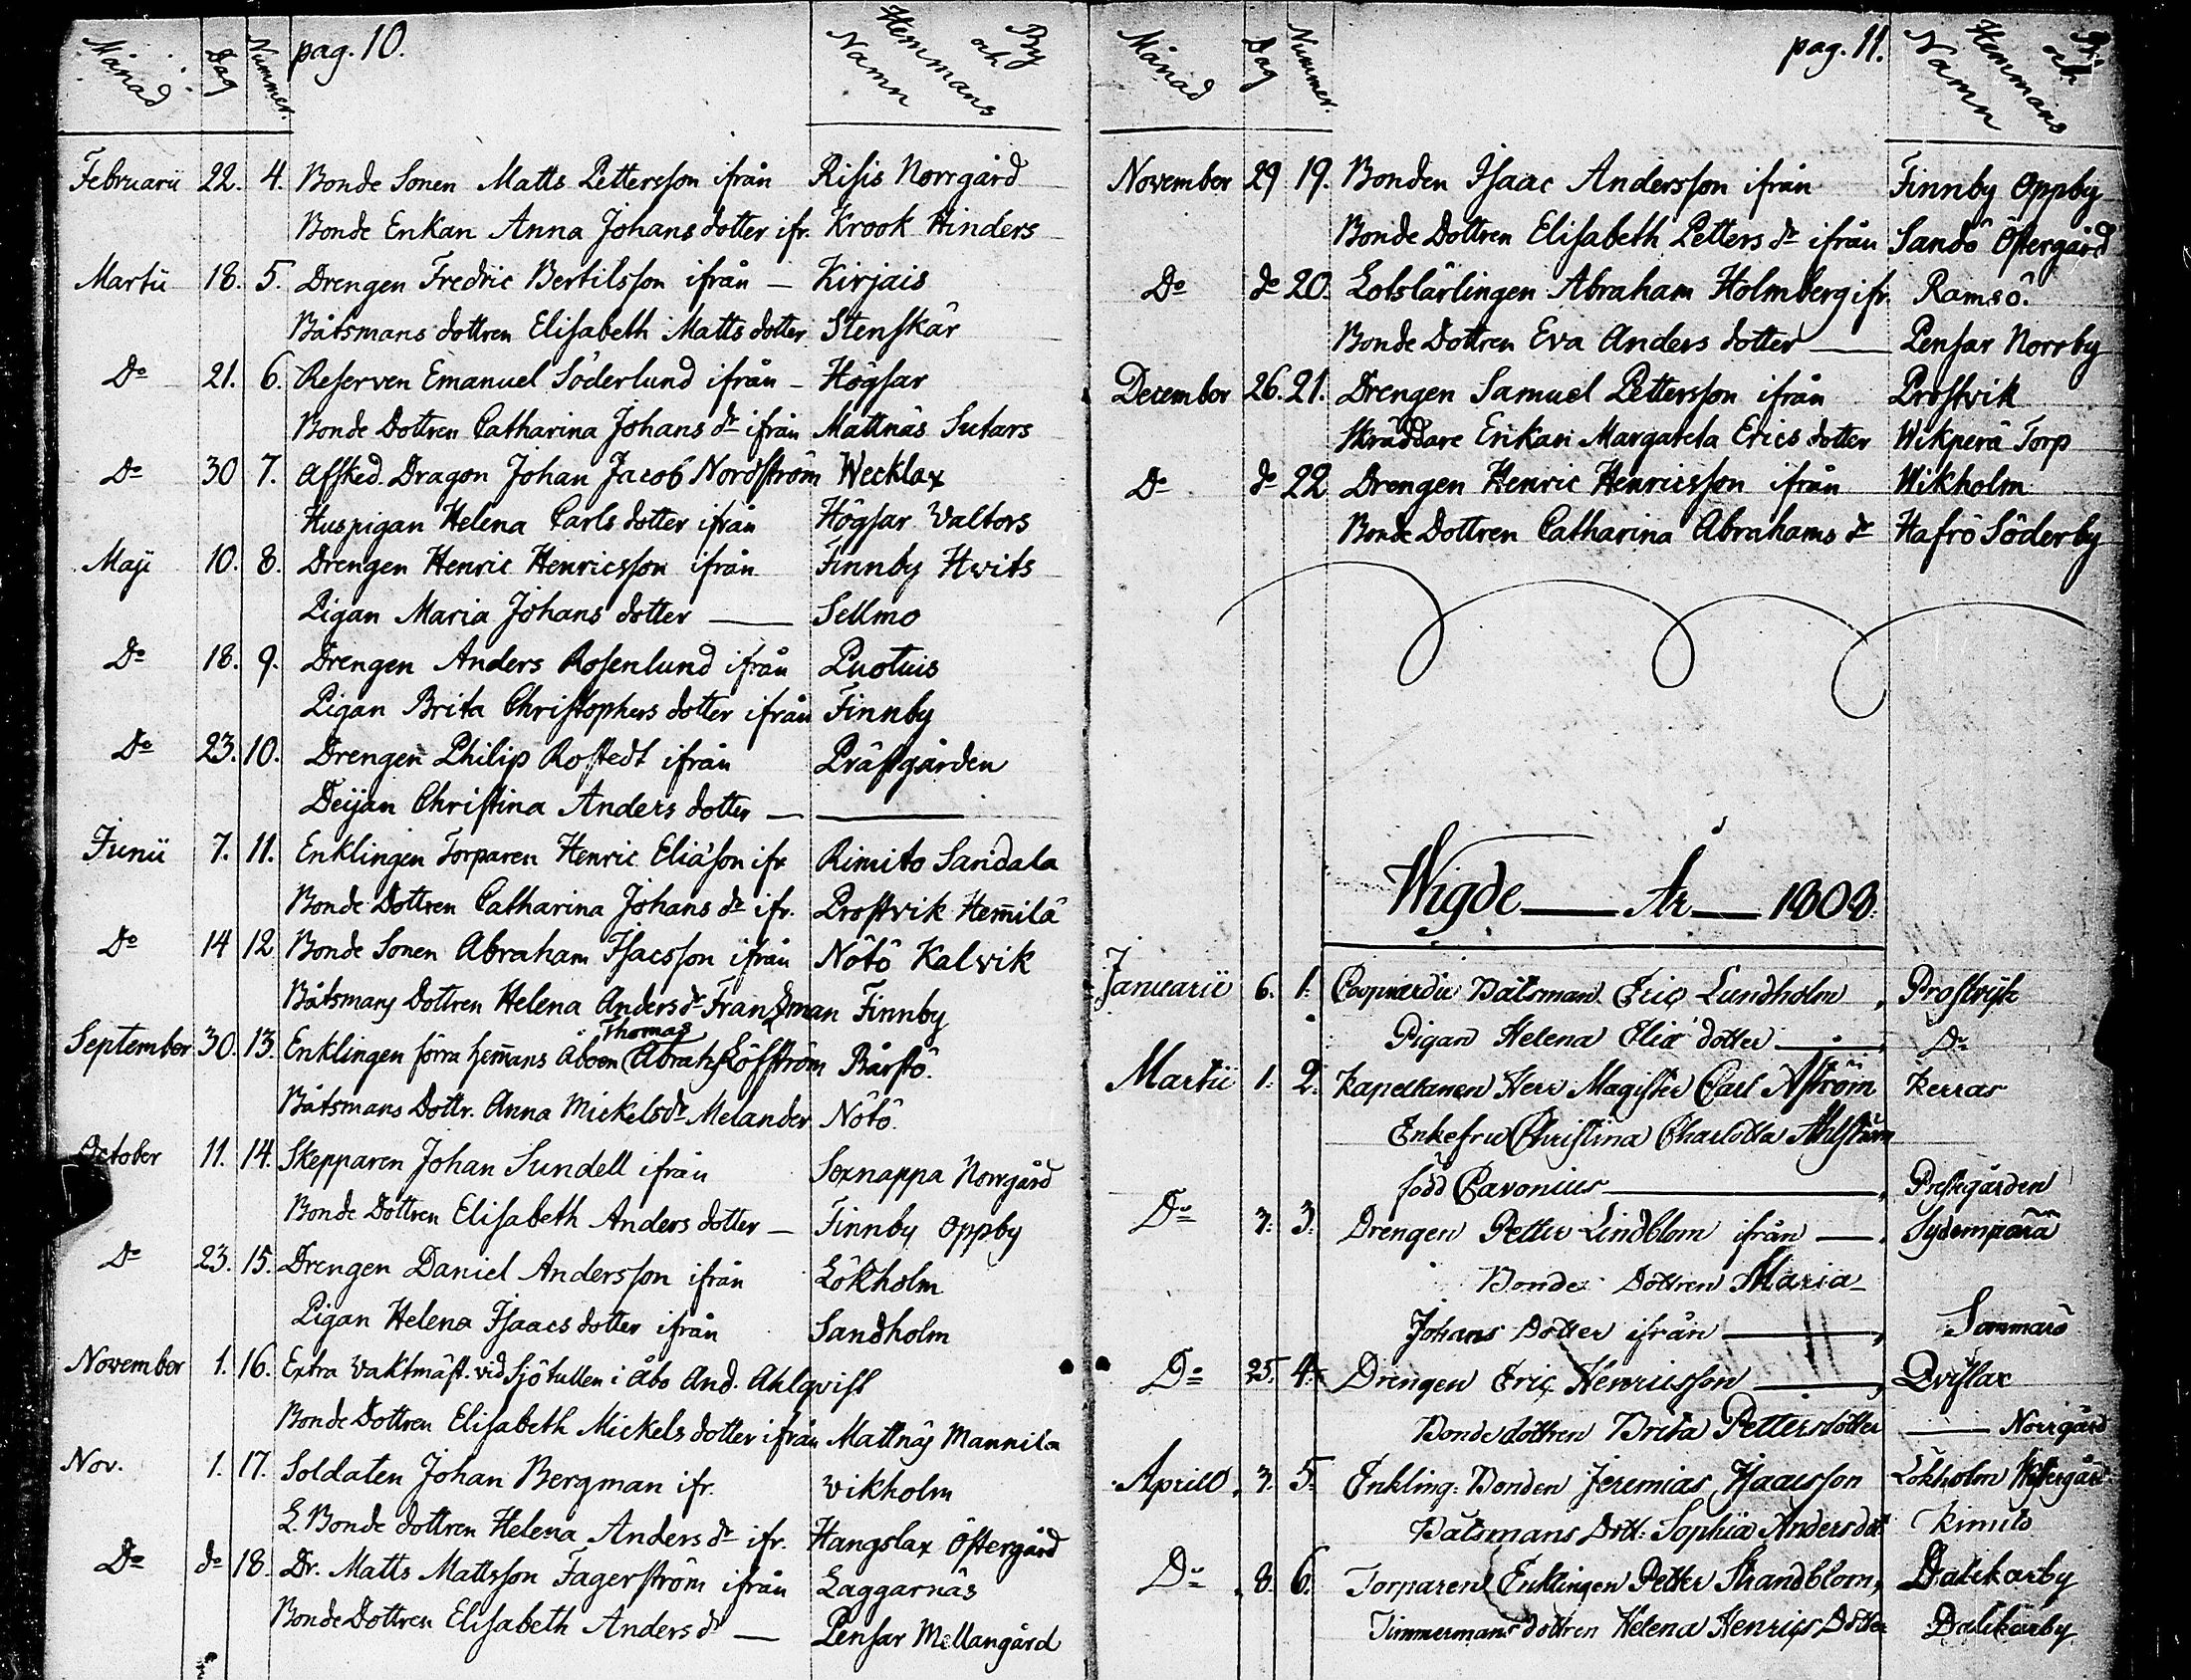 Månad Dag Nummer. pag. 10. By och Hemmans Namn
Februarii 22. 4. Bonde Sonen Matts Pettersson ifrån Risis Norrgård
Bonde Enkan Anna Johans dotter ifr. Krook Hinders
Martii 18. 5. Drengen Fredric Bertilsson ifrån — Kirjais
Båtsmans dottren Elisabeth Matts dotter Stenskär
Do 21. 6. Reserven Emanuel Söderlund ifrån — Högsar
Bonde Dottren Catharina Johans dr ifrån Mattnäs Sutars
Do 30 7. Afsked. Dragon Johan Jacob Nordström Wecklax
Huspigan Helena Carls dotter ifrån Högsar Valtors
Maji 10. 8. Drengen Henric Henricsson ifrån Finnby Hvits
Pigan Maria Johans dotter — Sellmo
Do 18. 9. Drengen Anders Rosenlund ifrån Puotuis
Pigan Brita Christophers dotter ifrån Finnby
Do 23. 10. Drengen Philip Rostedt ifrån Prästgården
Deijan Christina Anders dotter — —
Junii 7. 11. Enklingen Torparen Henric Eliason ifr Rimito Saridala
Bonde Dottren Catharina Johans dr ifr. Prostvik Hem̄ilä
Do 14 12 Bonde Sonen Abraham Isacsson ifrån Nötö Kalvik
Båtsmans Dottren Helena Anders dr Fran Finnby
Thomas
September 30. 13. Enklingen förra hem̄ans Åboen (Abrah) Löfström Bärstö.
Båtsmans Dottr. Anna Mickelsdr Melander Nötö.
October 11. 14. Skepparen Johan Sundell ifrån Sexnappa Norrgård
Bonde Dottren Elisabeth Anders dotter — Finnby Oppby
Do 23. 15. Drengen Daniel Andersson ifrån Lökholm
Pigan Helena Isaacs dotter ifrån Sandholm
November 1. 16. Extra Vaktmäst. vid Sjötullen i Åbo And. Ahlqvist
Bonde Dottren Elisabeth Mickels dotter ifrån Mattnäs Mannila
Nov. 1. 17. Soldaten Johan Bergman ifr. Vikholm
L. Bonde dottren Helena Anders dr ifr. Hangslax Östergård
Do do 18. Dr. Matts Mattsson Fagerström ifrån Laggarnäs
Bonde Dottren Elisabeth Anders dr — Pensar Mellangård
Månad Dag Nummer. pag. 11. By och Hemmans Namn
November 29 19. Bonden Isaac Andersson ifrån Finnby Oppby
Bonde Dottren Elisabeth Petters dr ifrån Sandö Östergård
Do do 20. Lotslärlingen Abraham Holmberg ifr. Ramsö.
Bonde Dottren Eva Anders dotter — Pensar Norrby
December 26. 21. Drengen Samuel Pettersson ifrån Prostvik
Skräddare Enkan Margareta Erics dotter Wikperä Torp
Do do 22 Drengen Henric Henricsson ifrån Wikholm
Bonde Dottren Catharina Abrahams dr Hafrö Söderby
Wigde — År — 1803.
Januarii 6. 1. Båtsman Eric Lundholm, Prostvik
Pigan Helena Elia dotter —, Do
Martii 1. 2. Kapellanen Herr Magister Carl Aström Kerras
Enkefru Christina Charlotta Ahlström
född Pavonius —, Prestgården
Do 3. 3. Drengen Petter Lindblom ifrån —, Sydempärä
Bonde Dottren Maria
Johans Dotter ifrån —, Sommarö
Do 25. 4. Drengen Eric Henricsson —, Qvislax
Bonde dottren Brita Petters dotter — Norrgård
Aprill. 3. 5. Enkling: Bonden Jeremias Isaacsson Lökholm Westergård
Båtsmans Dott: Sophia Anders dott: Kimito
Do. 8. 6. Torparen Enklingen Petter Strandblom, Dalkarby
Timmermans dottren Helena Henrics Dotter Dalkarby